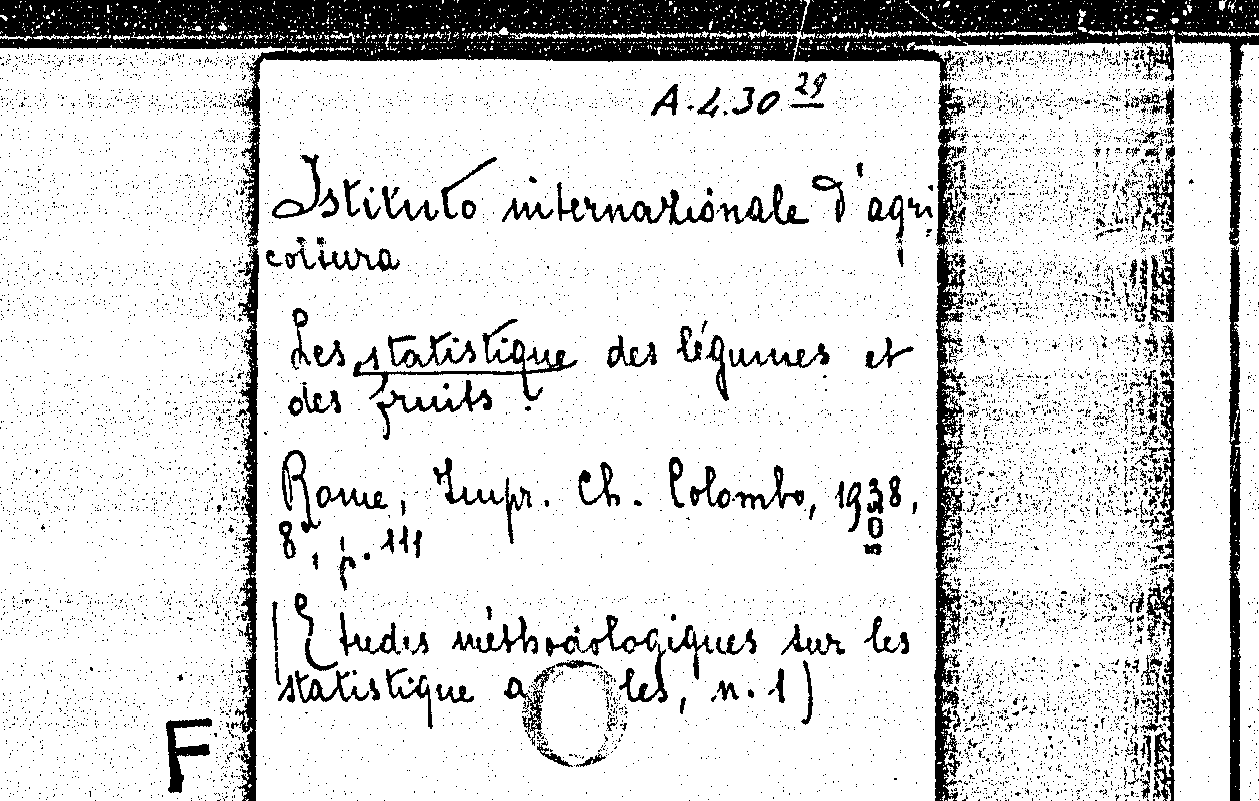 A.4.30 29
Istituto internazionale d'agri
coltura
Les statistique des légumes et
des fruits.
Rome, Impr. Ch. Colombo, 1938,
8°, p. 111
(Etudes méthodologiques sur les
statistique a les, n. 1)
F